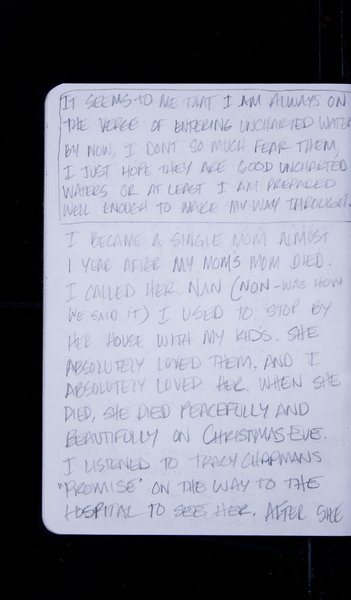 IT SEEMS TO ME THAT I AM ALWAYS ON
THE VERGE OF ENTERING UNCHARTED WATER
BY NOW, I DONT SO MUCH FEAR THEM,
I JUST HOPE THEY ARE GOOD UNCHARTED
WATERS OR AT LEAST I AM PREPARED
WELL ENOUGH TO MAKE MY WAY THROUGH.
I BECAME A SINGLE MOM ALMOST
1 YEAR AFTER MY MOMS MOM DIED.
I CALLED HER NAN (NON-WAS HOW
WE SAID IT) I USED TO STOP BY
HER HOUSE WITH MY KIDS. SHE
ABSOLUTELY LOVED THEM, AND I
ABSOLUTELY LOVED HER. WHEN SHE
DIED, SHE DIED PEACEFULLY AND
BEAUTIFULLY ON CHRISTMAS EVE.
I LISTENED TO TRACY CHAPMANS
"PROMISE" ON THE WAY TO THE
HOSPITAL TO SEE HER. AFTER SHE